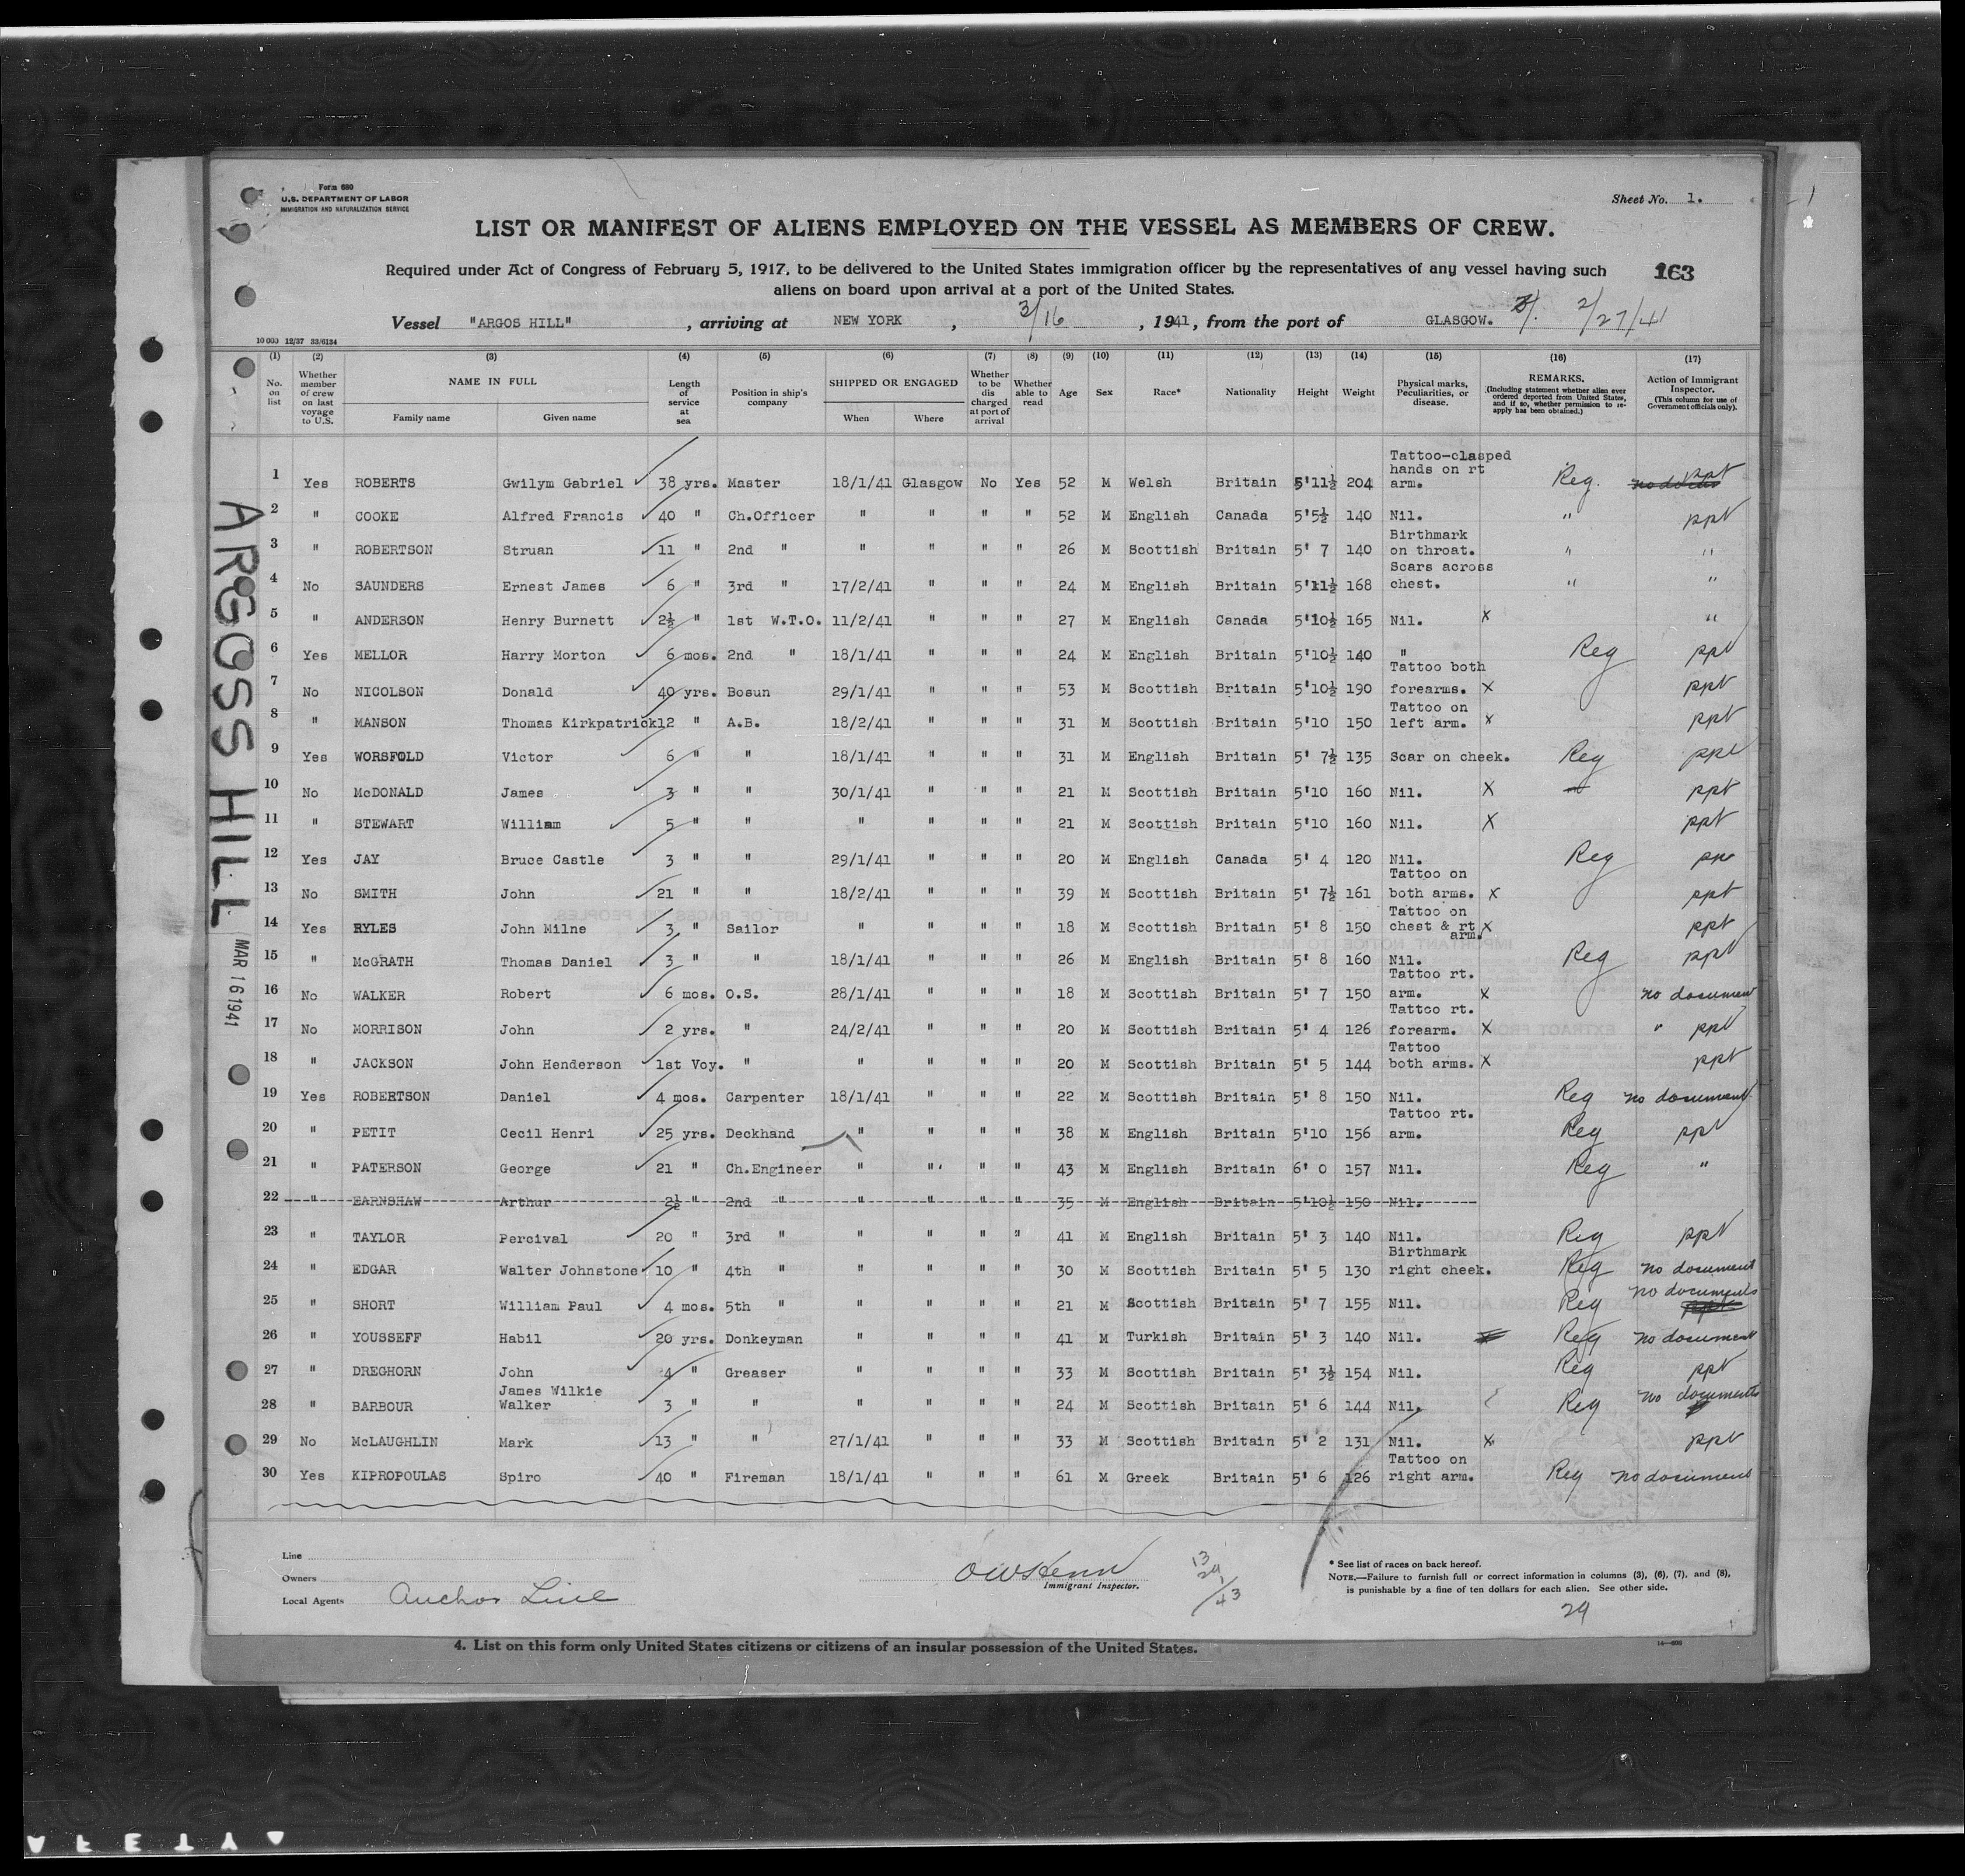 Form 680
U.S. DEPARTMENT OF LABOR
IMMIGRATION AND NATURALIZATION SERVICE
Sheet No. 1.
LIST OR MANIFEST OF ALIENS EMPLOYED ON THE VESSEL AS MEMBERS OF CREW.
Required under Act of Congress of February 5, 1917, to be delivered to the United States immigration officer by the representatives of any vessel having such
aliens on board upon arrival at a port of the United States.
163
Vessel "ARGOS HILL", arriving at NEW YORK, 3/16, 1941, from the port of GLASGOW. 2/27/41
10 000 12/37 33/6134
(1) (2) (3) (4) (5) (6) (7) (8) (9) (10) (11) (12) (13) (14) (15) (16) (17)
No. on list | Whether member of crew on last voyage to U.S. | NAME IN FULL Family name Given name | Length of service at sea | Position in ship's company | SHIPPED OR ENGAGED When Where | Whether to be discharged at port of arrival | Whether able to read | Age | Sex | Race* | Nationality | Height | Weight | Physical marks, Peculiarities, or disease. | REMARKS. (Including statement whether alien ever ordered deported from United States, and if so, whether permission to reapply has been obtained.) | Action of Immigrant Inspector. (This column for use of Government officials only).
1 Yes ROBERTS Gwilym Gabriel 38 yrs. Master 18/1/41 Glasgow No Yes 52 M Welsh Britain 5'11½ 204 Tattoo-clasped hands on rt arm. Reg. ppt
2 " COOKE Alfred Francis 40 " Ch.Officer " " " " 52 M English Canada 5'5½ 140 Nil. " ppt
3 " ROBERTSON Struan 11 " 2nd " " " " " 26 M Scottish Britain 5' 7 140 Birthmark on throat. " "
4 No SAUNDERS Ernest James 6 " 3rd " 17/2/41 " " " 24 M English Britain 5'11½ 168 Scars across chest. " "
5 " ANDERSON Henry Burnett 2½ " 1st W.T.O. 11/2/41 " " " 27 M English Canada 5'10½ 165 Nil. x "
6 Yes MELLOR Harry Morton 6 mos. 2nd " 18/1/41 " " " 24 M English Britain 5'10½ 140 " Reg ppt
7 No NICOLSON Donald 40 yrs. Bosun 29/1/41 " " " 53 M Scottish Britain 5'10½ 190 Tattoo both forearms. x ppt
8 " MANSON Thomas Kirkpatrick 12 " A.B. 18/2/41 " " " 31 M Scottish Britain 5'10 150 Tattoo on left arm. x ppt
9 Yes WORSFOLD Victor 6 " " 18/1/41 " " " 31 M English Britain 5' 7½ 135 Scar on cheek. Reg ppt
10 No McDONALD James 3 " " 30/1/41 " " " 21 M Scottish Britain 5'10 160 Nil. x ppt
11 " STEWART William 5 " " " " " " 21 M Scottish Britain 5'10 160 Nil. x ppt
12 Yes JAY Bruce Castle 3 " " 29/1/41 " " " 20 M English Canada 5' 4 120 Nil. Reg ppt
13 No SMITH John 21 " " 18/2/41 " " " 39 M Scottish Britain 5' 7½ 161 Tattoo on both arms. x ppt
14 Yes RYLES John Milne 3 " Sailor " " " " 18 M Scottish Britain 5' 8 150 Tattoo on chest & rt arm. x ppt
15 " McGRATH Thomas Daniel 3 " " 18/1/41 " " " 26 M English Britain 5' 8 160 Nil. Reg ppt
16 No WALKER Robert 6 mos. O.S. 28/1/41 " " " 18 M Scottish Britain 5' 7 150 Tattoo rt. arm. x no document
17 No MORRISON John 2 yrs. " 24/2/41 " " " 20 M Scottish Britain 5' 4 126 Tattoo rt. forearm. x " ppt
18 " JACKSON John Henderson 1st Voy. " " " " " 20 M Scottish Britain 5' 5 144 Tattoo both arms. x ppt
19 Yes ROBERTSON Daniel 4 mos. Carpenter 18/1/41 " " " 22 M Scottish Britain 5' 8 150 Nil. Reg no document
20 " PETIT Cecil Henri 25 yrs. Deckhand " " " " 38 M English Britain 5'10 156 Tattoo rt. arm. Reg ppt
21 " PATERSON George 21 " Ch.Engineer " " " " 43 M English Britain 6' 0 157 Nil. Reg "
22 " EARNSHAW Arthur 2½ " 2nd " " " " " 35 M English Britain 5'10½ 150 Nil.
23 " TAYLOR Percival 20 " 3rd " " " " " 41 M English Britain 5' 3 140 Nil. Reg ppt
24 " EDGAR Walter Johnstone 10 " 4th " " " " " 30 M Scottish Britain 5' 5 130 Birthmark right cheek. Reg no document
25 " SHORT William Paul 4 mos. 5th " " " " " 21 M Scottish Britain 5' 7 155 Nil. Reg no documents
26 " YOUSSEFF Habil 20 yrs. Donkeyman " " " " 41 M Turkish Britain 5' 3 140 Nil. Reg no document
27 " DREGHORN John 4 " Greaser " " " " 33 M Scottish Britain 5' 3½ 154 Nil. Reg ppt
28 " BARBOUR James Wilkie Walker 3 " " " " " " 24 M Scottish Britain 5' 6 144 Nil. Reg no documents
29 No McLAUGHLIN Mark 13 " " 27/1/41 " " " 33 M Scottish Britain 5' 2 131 Nil. x ppt
30 Yes KIPROPOULAS Spiro 40 " Fireman 18/1/41 " " " 61 M Greek Britain 5' 6 126 Tattoo on right arm. Reg no document
ARGOSS HILL
MAR 16 1941
Line
Owners
Local Agents Anchor Line
Immigrant Inspector.
13
29
1/43
* See list of races on back hereof.
NOTE.—Failure to furnish full or correct information in columns (3), (6), (7), and (8),
is punishable by a fine of ten dollars for each alien. See other side.
29
4. List on this form only United States citizens or citizens of an insular possession of the United States.
AFETY